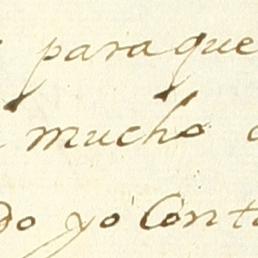 paraque
mucho
do yo Cont